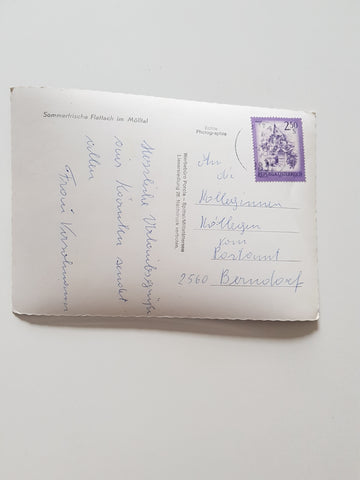 Sommerfrische Flattach im Mölltal
Herzliche Urlaubsgrüße
aus Kärnten sendet
allen
Frau
Echte
Photographie
2.50
REPUBLIK ÖSTERREICH
An
die
Kolleginnen
Kollegen
vom
Postamt
2560 Berndorf